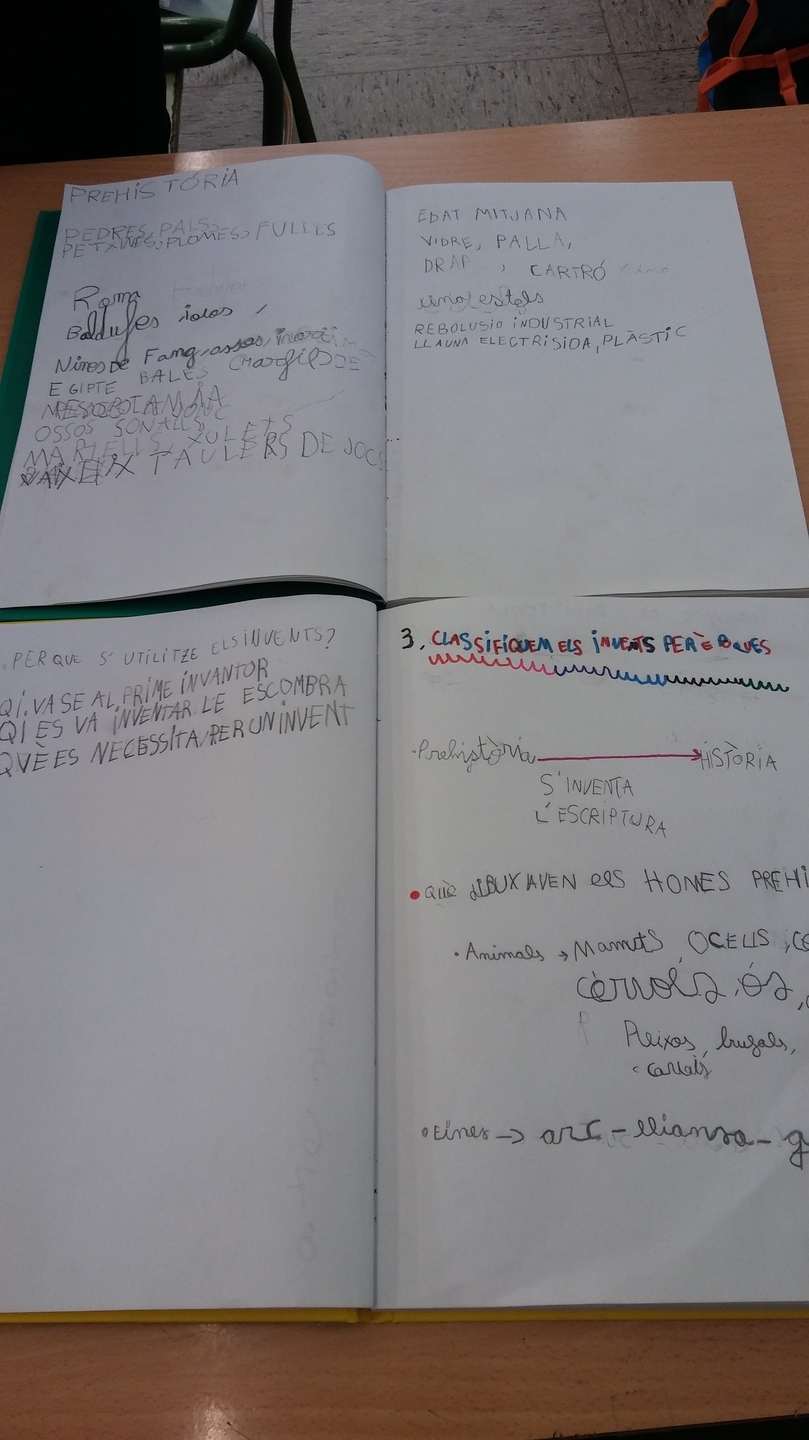 PREHISTÒRIA
PEDRES, PALS,
PETXINES, PLOMES, FULLES
Roma
Baldufes
Nines de Fang, assos,
EGIPTE BALES
OSSOS SONALLS
MARTELLS, XULETS
TAULERS DE JOCS
EDAT MITJANA
VIDRE, PALLA,
DRAP , CARTRÓ
estels
REBOLUSIO INDUSTRIAL
LLAUNA ELECTRISIDA, PLÀSTIC
PER QUE S'UTILITZE ELS INVENTS?
QI. VA SE AL PRIME INVANTOR
QI ES VA INVENTAR LE ESCOMBRA
QVÈ ES NECESSITA PER UN INVENT
3. CLASSIFIQUEM ELS INVENTS PER ÈBQUES
Prehistòria → HISTÒRIA
S'INVENTA
L'ESCRIPTURA
• QUÈ diBUXAVEN ElS HONES PREHI
• Animals → MamutS, OCELLS, CE
cèrvols, ós,
Peixos,
cavals
• Eines → arc - lliansa - g